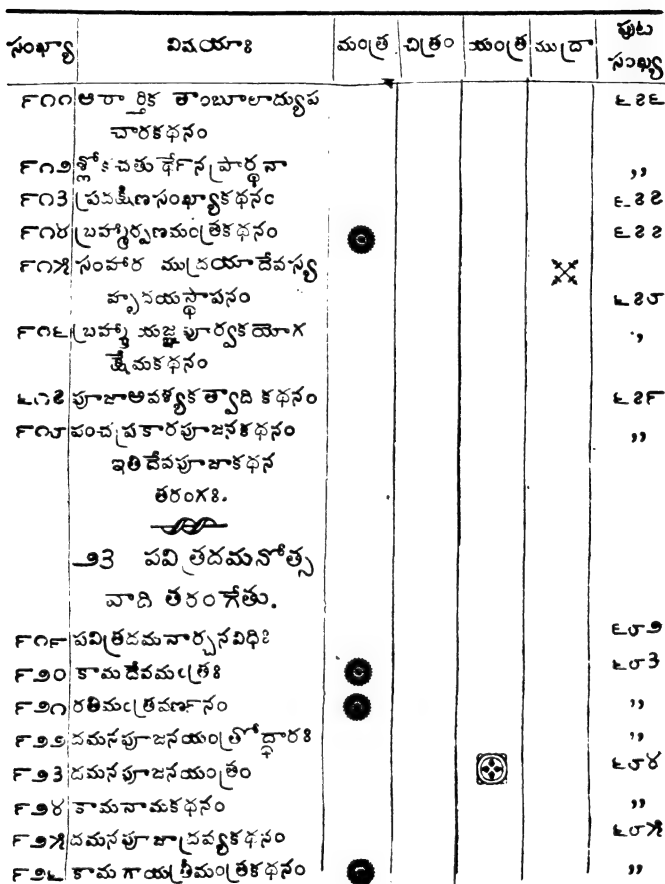 సంఖ్యా విషయాః మంత్ర చిత్రం యంత్ర ముద్రా పుట సంఖ్య
౯౧౧ ఆరార్తిక తాంబూలాద్యుప ౬౭౬
చారకథనం
౯౧౨ శ్లోకచతుర్థేన ప్రార్థనా ,,
౯౧౩ ప్రదక్షిణసంఖ్యాకథనం ౬౭౭
౯౧౪ బ్రహ్మార్పణమంత్రకథనం ౬౭౭
౯౧౫ సంహార ముద్రయా దేవస్య
హృదయస్థాపనం ౬౭౮
౯౧౬ బ్రహ్మా యజ్ఞపూర్వకయోగ ,,
క్షేమకథనం
౯౧౭ పూజాఅవశ్యకత్వాది కథనం ౬౭౯
౯౧౮ పంచప్రకారపూజనకథనం ,,
ఇతిదేవపూజాకథన
తరంగః.
౨౩ పవిత్రదమనోత్స
వాది తరంగేతు.
౯౧౯ పవిత్రదమనార్చనవిధిః ౬౮౨
౯౨౦ కామదేవమంత్రః ౬౮౩
౯౨౧ రతిమంత్రవర్ణనం ,,
౯౨౨ దమనపూజనయంత్రోద్ధారః ,,
౯౨౩ దమనపూజనయంత్రం ౬౮౪
౯౨౪ కామనామకథనం ,,
౯౨౫ దమనపూజాద్రవ్యకథనం ౬౮౫
౯౨౬ కామగాయత్రీమంత్రకథనం ,,